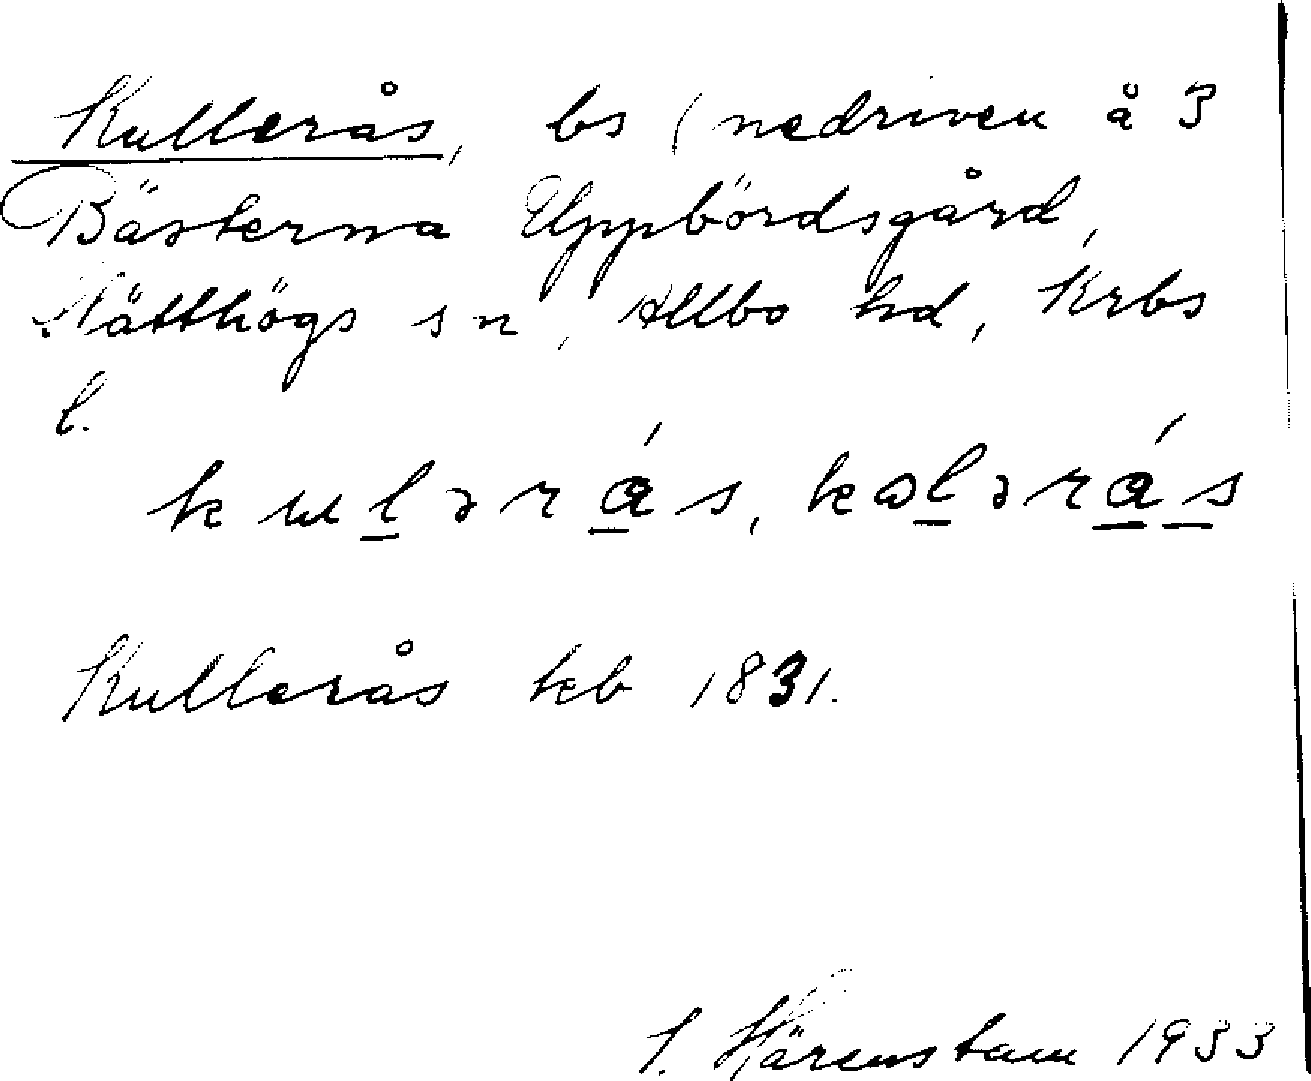 Kullerås, bs (nedriven å 3
Bästerna Uppbördsgård,
Slätthögs sn, Allbo hd, Krbs
l.
kulərás, kɷlərás
Kullerås kb 1831.
S. Härenstam 1933